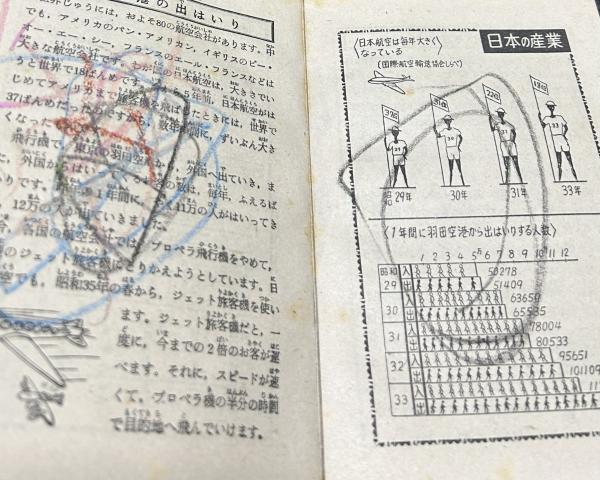 港の出はいり
界じゅうには、およそ80の航空会社があります。中
でも、アメリカのパン・アメリカン、イギリスのビー・
オー・エー・シー、フランスのエール・フランスなどは
大きな航空会社です。わが国の日本航空は、大きさでい
うと世界で18ばんめです。
じめてアメリカまで旅客機を飛ばしたときには、世界で
37ばんめだったのですから、数年の間に、ずいぶん大き
くなった
飛行機で、東京の羽田空 外国へ出ていき、ま
た、外国から の数は、毎年、ふえるば
かりです。 1年間に、 11万の人がはいってき
12万の人が出ていきました。
今、各国の航空会社では、プロペラ飛行機をやめて、
のジェット旅客機にとりかえようとしています。日
でも、昭和35年の春から、ジェット旅客機を使い
ます。ジェット旅客機だと、一
度に、今までの2倍のお客が運
べます。それに、スピードが速
くて、プロペラ機の半分の時間
で目的地へ飛んでいけます。
日本の産業
〈日本航空は毎年大きく
なっている〉
(国際航空輸送協会しらべ)
37位 31位 22位 18位
昭和29年 30年 31年 33年
〈1年間に羽田空港から出はいりする人数〉
1 2 3 4 5万 6 7 8 9 10 11 12
昭和
29 入 50278
出 51409
30 入 63659
出 65535
31 入 78004
出 80533
32 入 95651
出 101109
33 入 11
出